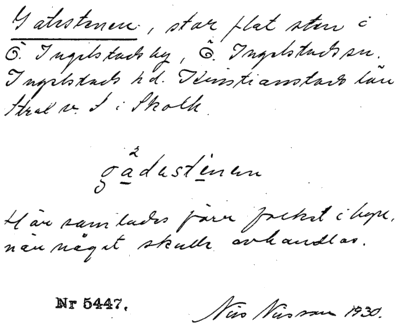 Gatustenen, stor flat sten i
Ö. Ingelstads by, Ö. Ingelstads sn.
Ingelstads hd. Kristianstads län
Strax v. S i Skolh.
gå²dəstenən
Här samlades förr folket i hope,
när något skulle avhandlas.
Nr 5447.
Nils Nilsson 1930.